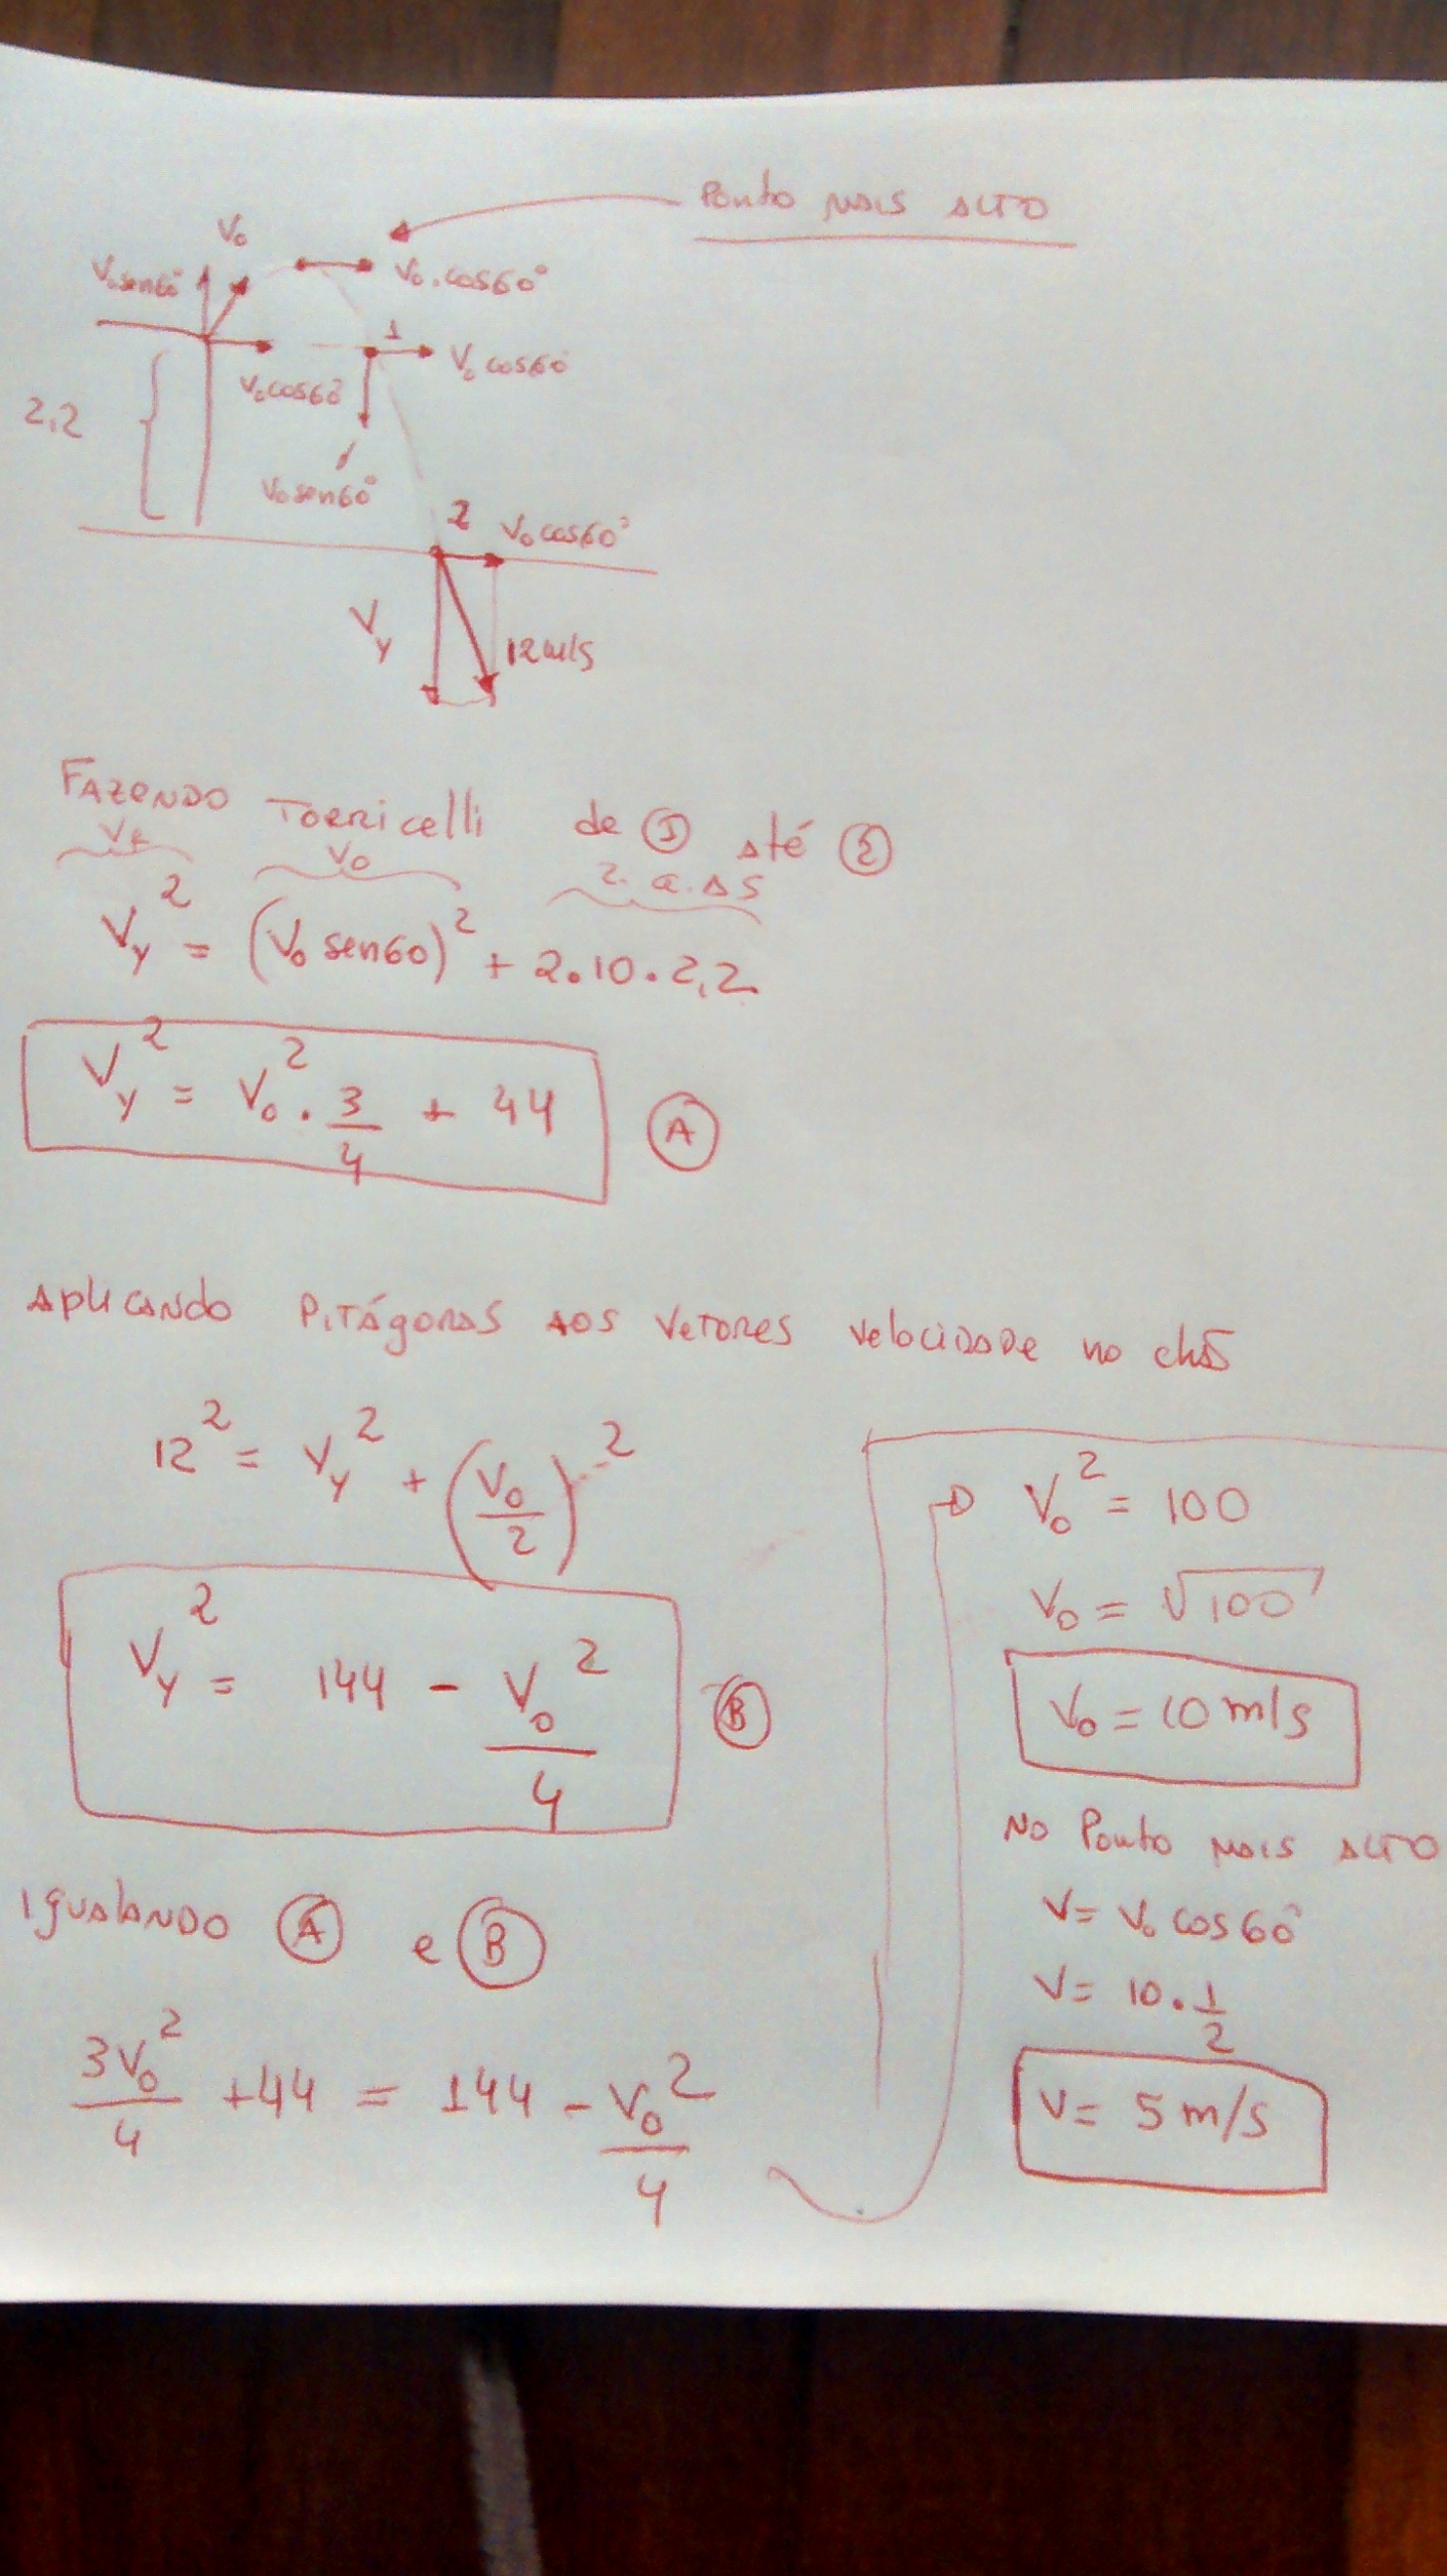 Ponto mais alto
V₀
V₀sen60°
V₀.cos60°
1
V₀cos60°
V₀cos60°
2,2
V₀sen60°
2
V₀cos60°
Vy
12m/s
Fazendo Torricelli de ① até ②
V₀
2.a.ΔS
Vy² = (V₀ sen60)² + 2.10.2,2
Vy² = V₀² . 3/4 + 44
Ⓐ
Aplicando Pitágoras aos vetores velocidade no chão
12² = Vy² + (V₀/2)²
Vy² = 144 - V₀²/4
Ⓑ
Igualando Ⓐ e Ⓑ
3V₀²/4 + 44 = 144 - V₀²/4
V₀² = 100
V₀ = √100
V₀ = 10 m/s
No ponto mais alto
V = V₀ cos60°
V = 10 . 1/2
V = 5 m/s